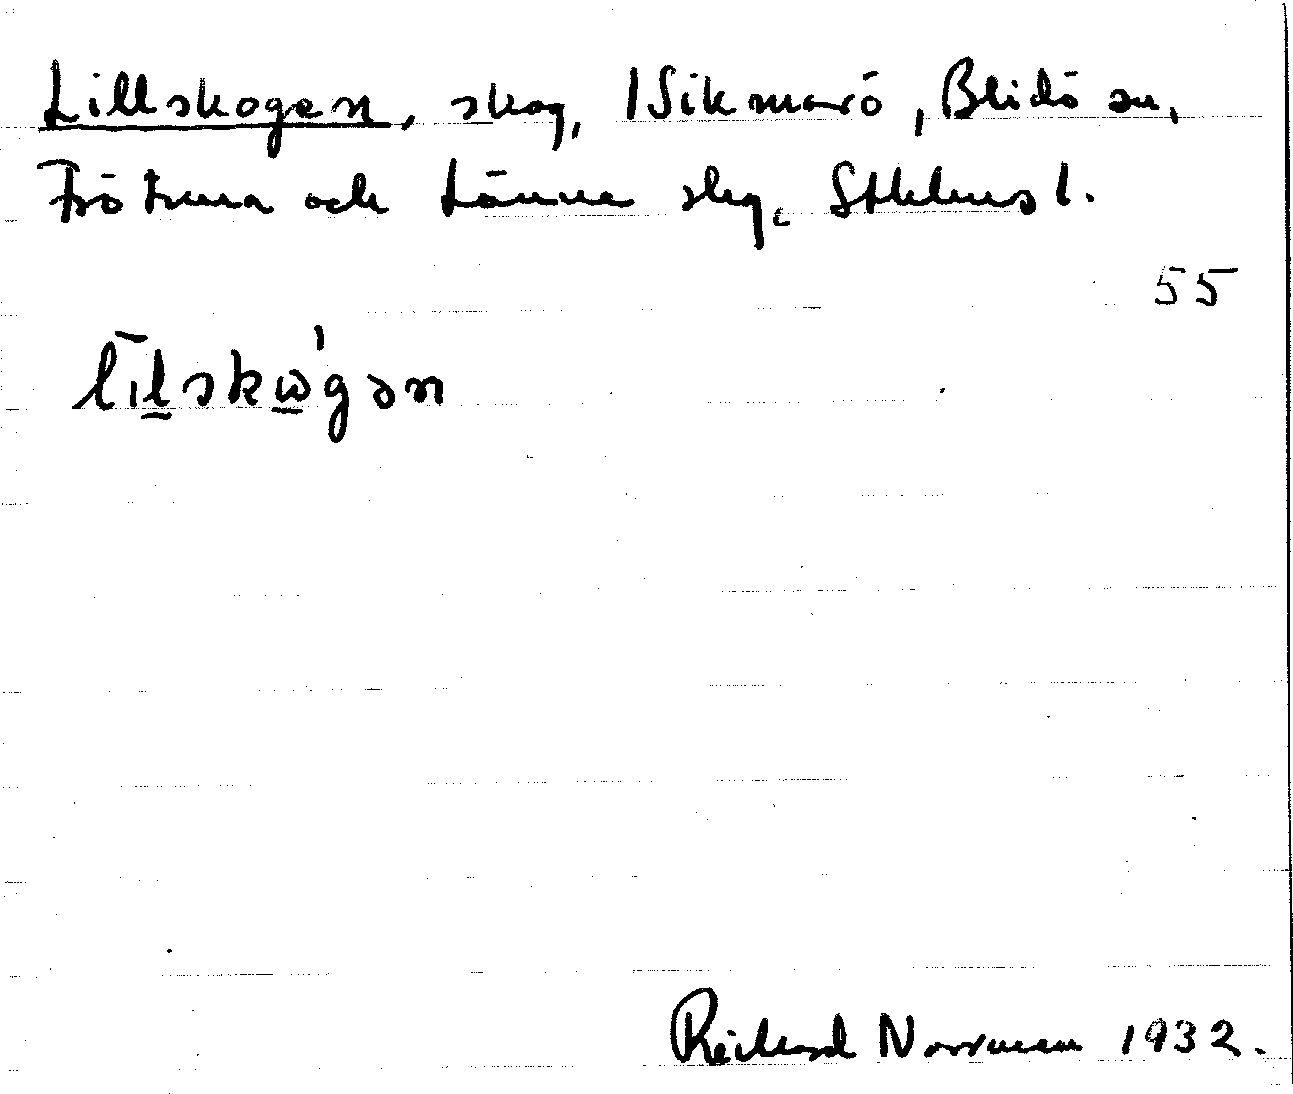 Lillskogen, skog, 1 Sikmarö, Blidö sn,
Frötuna och Länna slg. Sthlms l.
55
lilskωgən
Richard Norrman 1932.